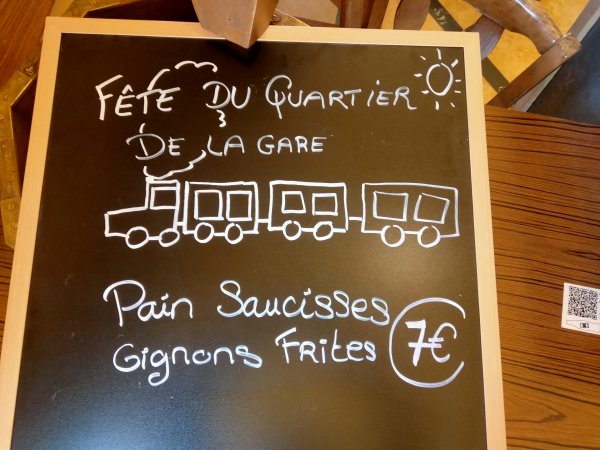 FÊTE DU QUARTIER
DE LA GARE
Pain Saucisses
Gignons Frites 7€